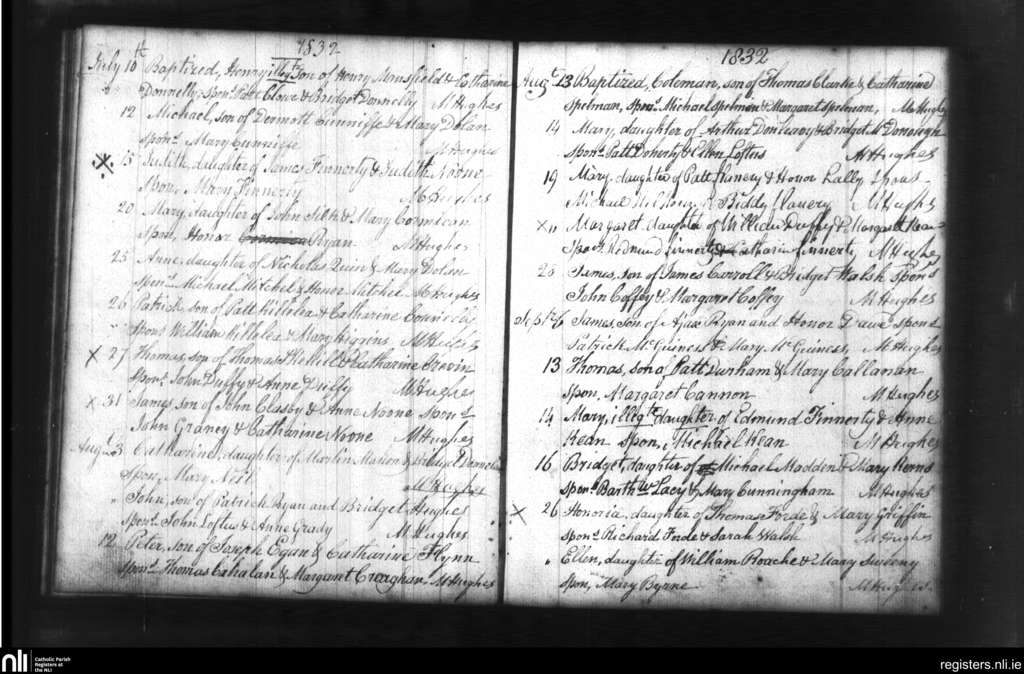 1832
July 10th Baptized, Henry illegt. Son of Henry Mansfield & Catharine
Donnelly, Sponr. & Bridget Donnelly M Hughes
12 Michael, son of Dermott Cunniffe & Mary Dolan
Sponr. Mary Cunniffe M Hughes
15 Judith, daughter of James Finnerty & Judith Noone
Spon. Mary Finnerty M Hughes
20 Mary, daughter of John Silke & Mary Cormican
Spon, Honor Ryan M Hughes
25 Anne, daughter of Nicholas Quin & Mary Dolan
Spons. Michael Mitchel & Honor Mitchel M Hughes
26 Patrick, son of Patt Killelea & Catharine Connelly
" Spons William Killelea & Mary Higgins, M Hughes
x 27 Thomas, son of Thomas & Catharine
Spons. John Duffy & Anne Duffy M Hughes
x 31 James, son of John Clasby & Anne Noone Spons.
John Graney & Catharine Noone M Hughes
Augt. 3 Catharine, daughter of Martin &
Spon, Mary M Hughes
" John, son of Patrick Ryan and Bridget Hughes
Spons. John Loftus & Anne Grady M Hughes
12 Peter, son of Joseph Egan & Catharine Flynn
Spons. Thomas Cahalan & Margaret Creaghan, M Hughes
1832
Augt. 13 Baptized, Coleman, son of Thomas Clarke & Catharine
Spelman, Spons. Michael Spelman & Margaret Spelman, M Hughes
14 Mary, daughter of Arthur Donleavy & Bridget McDonough
Spons. Patt Doherty & Ellen Loftus M Hughes
19 Mary, daughter of Patt Flanery & Honor Lally Spons
Michael & Biddy Flanery M Hughes
x " Margaret, daughter of William Duffy & Margaret
Spons. Redmund Finnerty & Catharine Finnerty M Hughes
28 James, son of James Carroll & Bridget Walsh Spons
John Coffey & Margaret Coffey M Hughes
Sept. 6 James, son of Ryan and Honor Spons
Patrick McGuiness & Mary McGuiness, M Hughes
13 Thomas, son of Patt Durham & Mary Callanan
Spon, Margaret Cannon M Hughes
14 Mary, illegte. daughter of Edmund Finnerty & Anne
Kean Spon, Michael Kean M Hughes
16 Bridget, daughter of Michael Madden & Mary Kerns
Spons. Barthw. Lacy & Mary Cunningham M Hughes
x 26 Honoria, daughter of Thomas Forde & Mary Griffin
Spons. Richard Forde & Sarah Walsh M Hughes
" Ellen, daughter of William Roache & Mary Sweeny
Spon, Mary Byrne M Hughes
nli Catholic Parish
Registers at
the NLI
registers.nli.ie